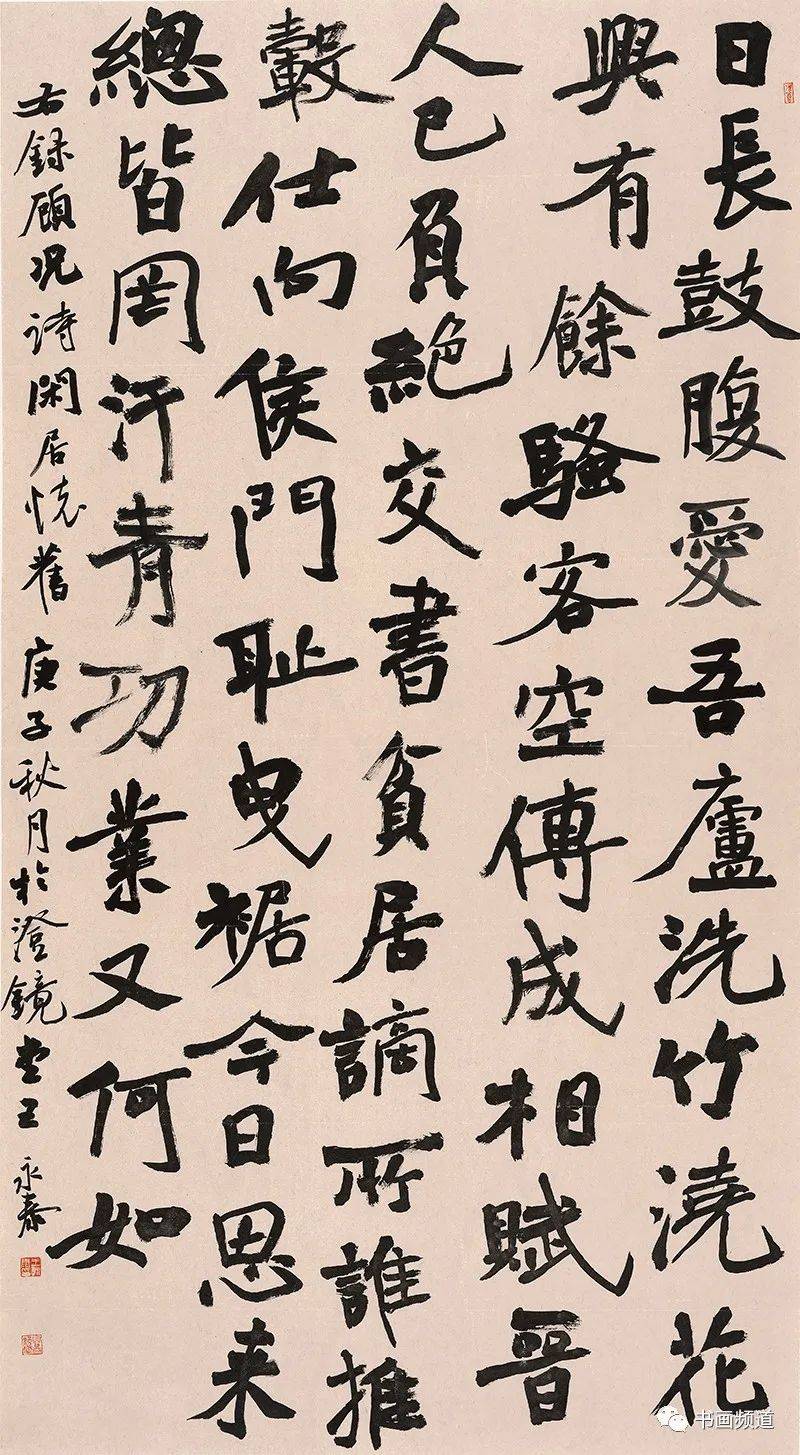 日長鼓腹愛吾廬洗竹澆花
興有餘騷客空傳成相賦晉
人已負絕交書貧居謫所誰推
轂仕向侯門耻曳裾今日思来
總皆罔汗青功業又何如
右録顧况詩閑居懷舊 庚子秋月於澄鏡堂王永泰
书画频道